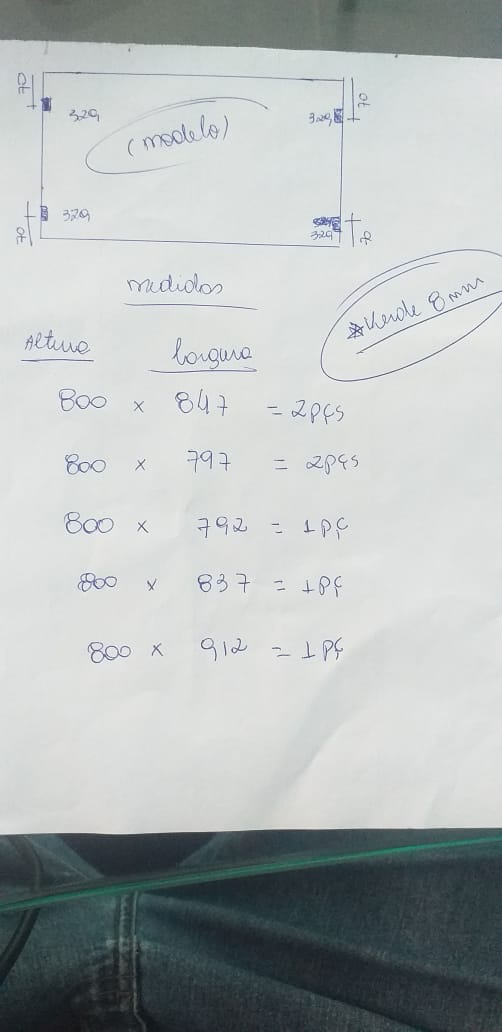 70
70
329
329
(modelo)
329
329
70
70
medidas
*Verde 8mm
Altura
largura
800 x 847 = 2pçs
800 x 797 = 2pçs
800 x 792 = 1pç
800 x 837 = 1pç
800 x 912 = 1pç